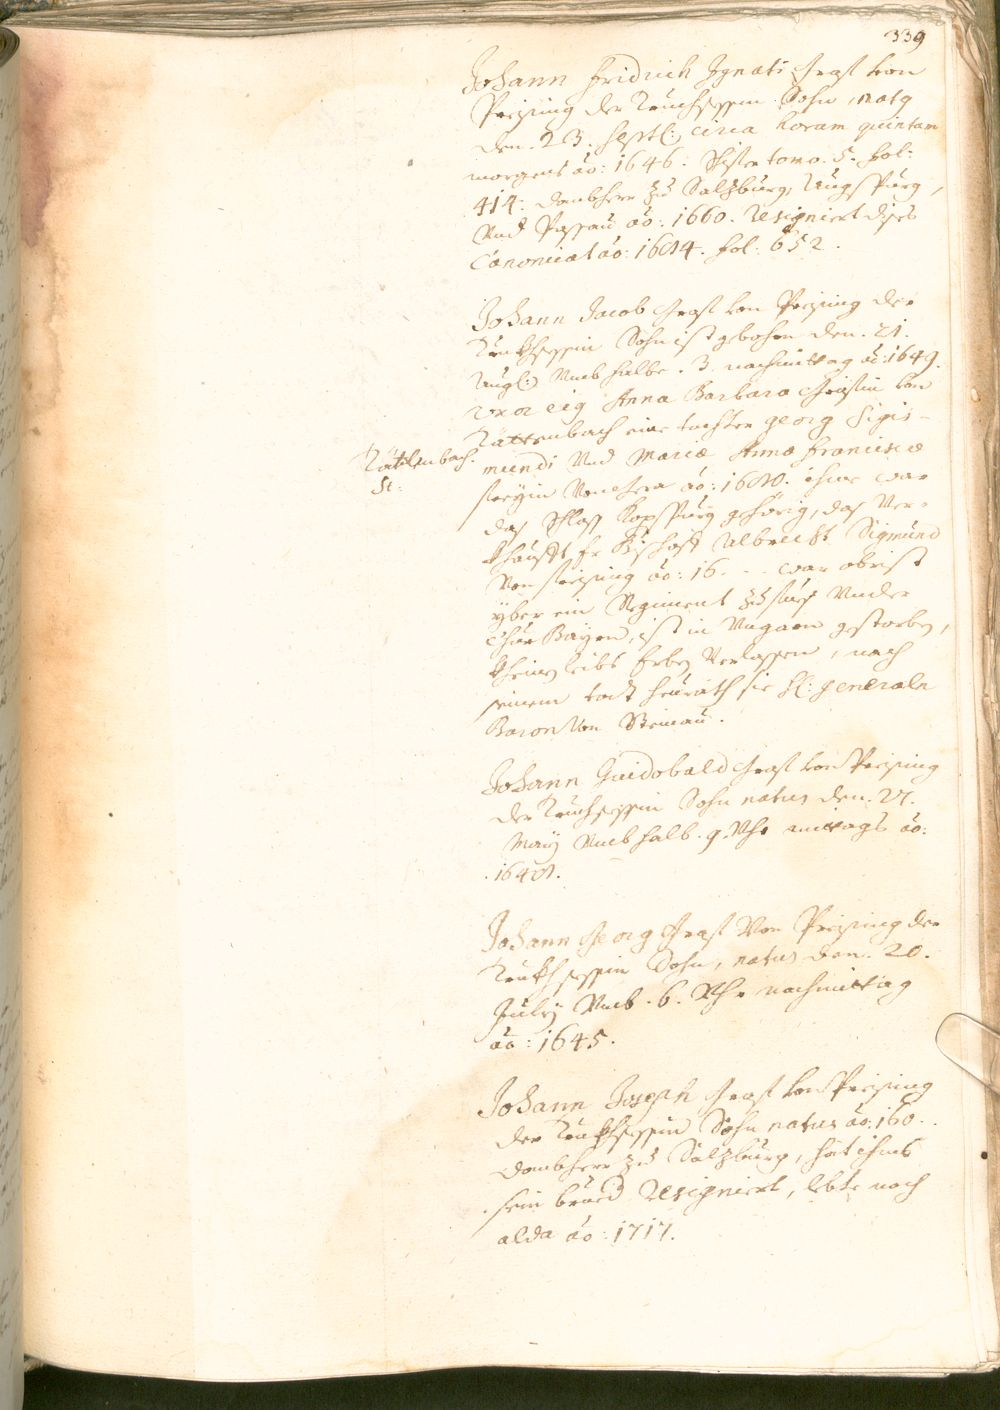 339
Johann Fridrich Ignati Graf von
Preising der Truchsessin Sohn, nat9
den. 23. Septb: circa horam quintam
morgens ao: 1646. tomo. 5. fol:
414: dombherr zu Salzburg, Augspurg,
Vnd Passau ao: 1660. resigniert dises
Canonicat ao: 1684. fol: 652.
Johann Jacob Graf von Preising der
Truchsessin Sohn ist gebohrn den. 21.
Augt: Vmb halbe. 3. nachmittag ao: 1649.
uxor eig Anna Barbara Gräfin von
Tättenbach eine tochter georg Sigis-
Tättenbach.
St:
mundi Vnd Mariæ Annæ Franciscæ
ao: 1680. ihme war
das Schloss Kopfsburg gehörig, das Ver-
khaufft er Bischoff Albrecht Sigmund
Von freising ao: 16. -- war obrist
yber ein Regiment zu fues Vnder
Chur Bayrn, ist in Vngarn gestorben,
kheine leibs Erben Verlassen, nach
seinem todt heurath sie H: general
Baron Von Steinau.
Johann Guidobald Graf von Preising
der Truchsessin Sohn natus den. 27.
May Vmb halb. 9. Vhr mitags ao:
1648.
Johann Georg Graf Von Preising der
Truchsessin Sohn, natus den. 20.
July Vmb. 6. Vhr nachmittag
ao: 1645.
Johann Joseph Graf von Preising
der Truchsessin Sohn natus ao: 160..
dombherr zu Salzburg, hat ihms
sein brued resigniert, lebte noch
alda ao: 1717.